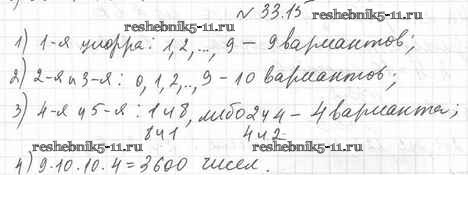 № 33.15
reshebnik5-11.ru reshebnik5-11.ru
1) 1-я цифра: 1,2,.., 9 – 9 вариантов;
2) 2-я и 3-я: 0,1,2,..,9 – 10 вариантов;
3) 4-я и 5-я: 1 и 8, либо 2 и 4 – 4 варианта;
8 и 1 4 и 2
reshebnik5-11.ru reshebnik5-11.ru
4) 9·10·10·4=3600 чисел.